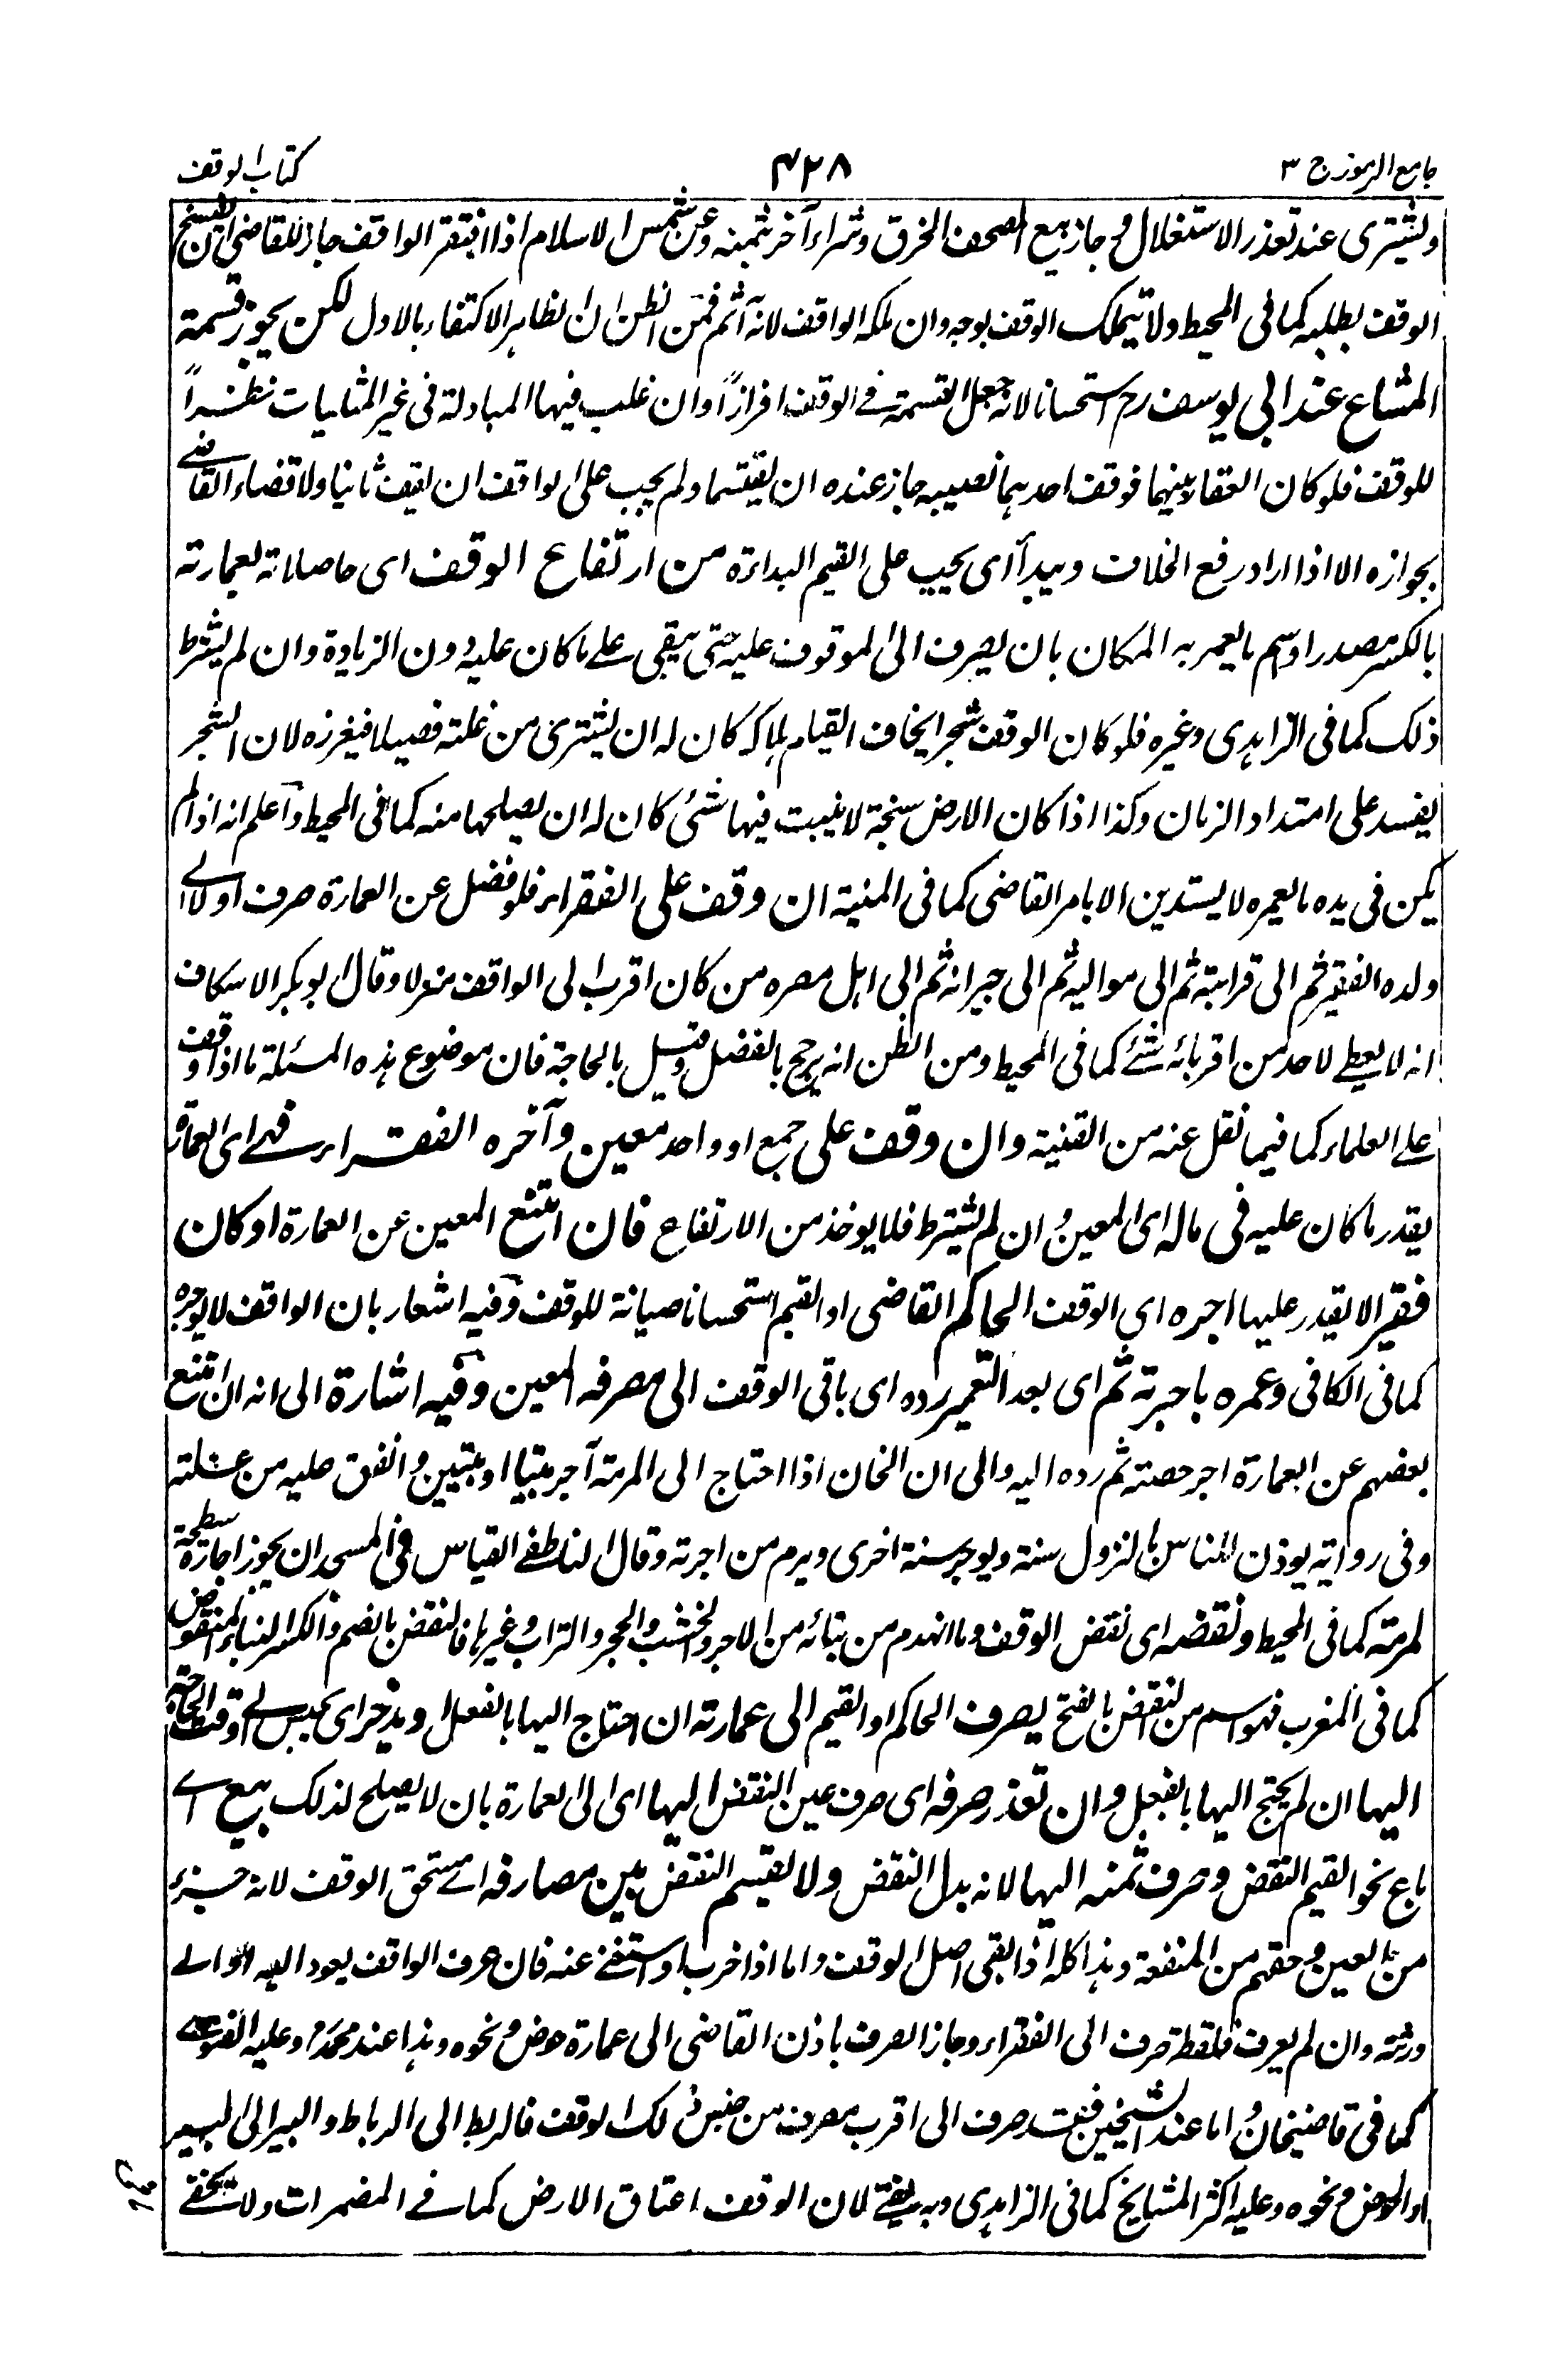 جامع الرموز ج ٣
٤٢٨
كتاب الوقف
ويشترى عند تعذر الاستغلال وح جاز بيع المصحف الخرق وشراء آخر بثمنه وعن شمس الاسلام اذا افتقر الواقف جاز للقاضى ان يفسخ
الوقف بطلبه كما فى المحيط ولا يتملك الوقف بوجه وان ملكه الواقف لانه آثم فمن الظن ان الظاهر الاكتفاء بالاول لكن يجوز قسمة
المشاع عند ابى يوسف رح استحسانا لانه جعل القسمة فى الوقف افرازاً وان غلب فيها المبادلة فى غير المثليات نظراً
للوقف فلو كان العقار بينهما فوقف احدهما نصيبه جاز عنده ان يقتسما ولم يجب على الواقف ان يقف ثانيا ولا قضاء القاضى
بجوازه الا اذا اراد رفع الخلاف ويبدأ اى يجب على القيم البداءة من ارتفاع الوقف اى حاصلاته لعمارته
بالكسر مصدر او اسم ما يعمر به المكان بان يصرف الى الموقوف عليه حتى يبقى على ما كان عليه دون الزيادة وان لم يشترط
ذلك كما فى الزاهدى وغيره فلو كان الوقف شجرا يخاف القيام هلاكه كان له ان يشترى من غلته فصيلا فيغرزه لان الشجر
يفسد على امتداد الزمان وكذا اذا كان الارض سبخة لا ينبت فيها شئ كان له ان يصلحها منه كما فى المحيط واعلم انه اذا لم
يكن فى يده ما يعمره لا يستدين الا بامر القاضى كما فى المنية ان وقف على الفقراء فلو فضل عن العمارة صرف اولا الى
ولده الفقير ثم الى قرابته ثم الى مواليه ثم الى جيرانه ثم الى اهل مصره من كان اقرب الى الواقف منزلا وقال ابو بكر الاسكاف
انه لا يعطى لاحد من اقربائه شئ كما فى المحيط ومن الظن انه يرجح بالفضل وقيل بالحاجة فان موضوع هذه المسئلة ما اذا وقف
على العلماء كما فيما نقل عنه من القنية وان وقف على جمع او واحد معين وآخره الفقراء فهى اى العمارة
بقدر ما كان عليه فى ماله اى المعين وان لم يشترط فلا يوخذ من الارتفاع فان امتنع المعين عن العمارة او كان
فقيرا لا يقدر عليها اجره اى الوقف الحاكم القاضى او القيم استحسانا صيانة للوقف وفيه اشعار بان الواقف لا يوجره
كما فى الكافى وعمره باجرته ثم اى بعد التعمير رده اى باقى الوقف الى مصرفه المعين وفيه اشارة الى انه ان امتنع
بعضهم عن العمارة اجر حصته ثم رده اليه والى ان الخان اذا احتاج الى المرمة آجر بيتا او بيتين وانفق عليه من غلته
وفى رواية يوذن للناس بالنزول سنة ويوجر سنة اخرى ويرم من اجرته وقال الناطفى القياس فى المسجد ان يجوز اجارة سطحه
لمرمته كما فى المحيط ونقضه اى نقض الوقف وما انهدم من بنائه من الاجر والخشب والحجر والتراب وغيرها فالنقض بالضم والكسر البناء المنقوض
كما فى المغرب فهو اسم من النقض بالفتح يصرف الحاكم او القيم الى عمارته ان احتاج اليها بالفعل او يدخر اى يحبس الى وقت الحاجة
اليها ان لم يحتج اليها بالفعل وان تعذر صرفه اى صرف عين النقض اليها اى الى العمارة بان لا يصلح لذلك بيع اى
باع نحو القيم النقض وصرف ثمنه اليها لانه بدل النقض ولا يقسم النقض بين مصارفه اى مستحق الوقف لانه جزء
من العين وحقهم من المنفعة وهذا كله اذا بقى اصل الوقف واما اذا خرب او استغنى عنه فان عرف الواقف يعود اليه او الى
ورثته وان لم يعرف فلقطة صرف الى الفقراء وجاز الصرف باذن القاضى الى عمارة حوض ونحوه وهذا عند محمد رح وعليه الفتوى
كما فى قاضيخان واما عند الشيخين فيجب صرف الى اقرب مصرف من جنس ذلك الوقف فالربط الى الرباط والبير الى البير
او الحوض ونحوه وعليه اكثر المشايخ كما فى الزاهدى وبه يفتى لان الوقف اعتاق الارض كما فى المضمرات ولا يخفى